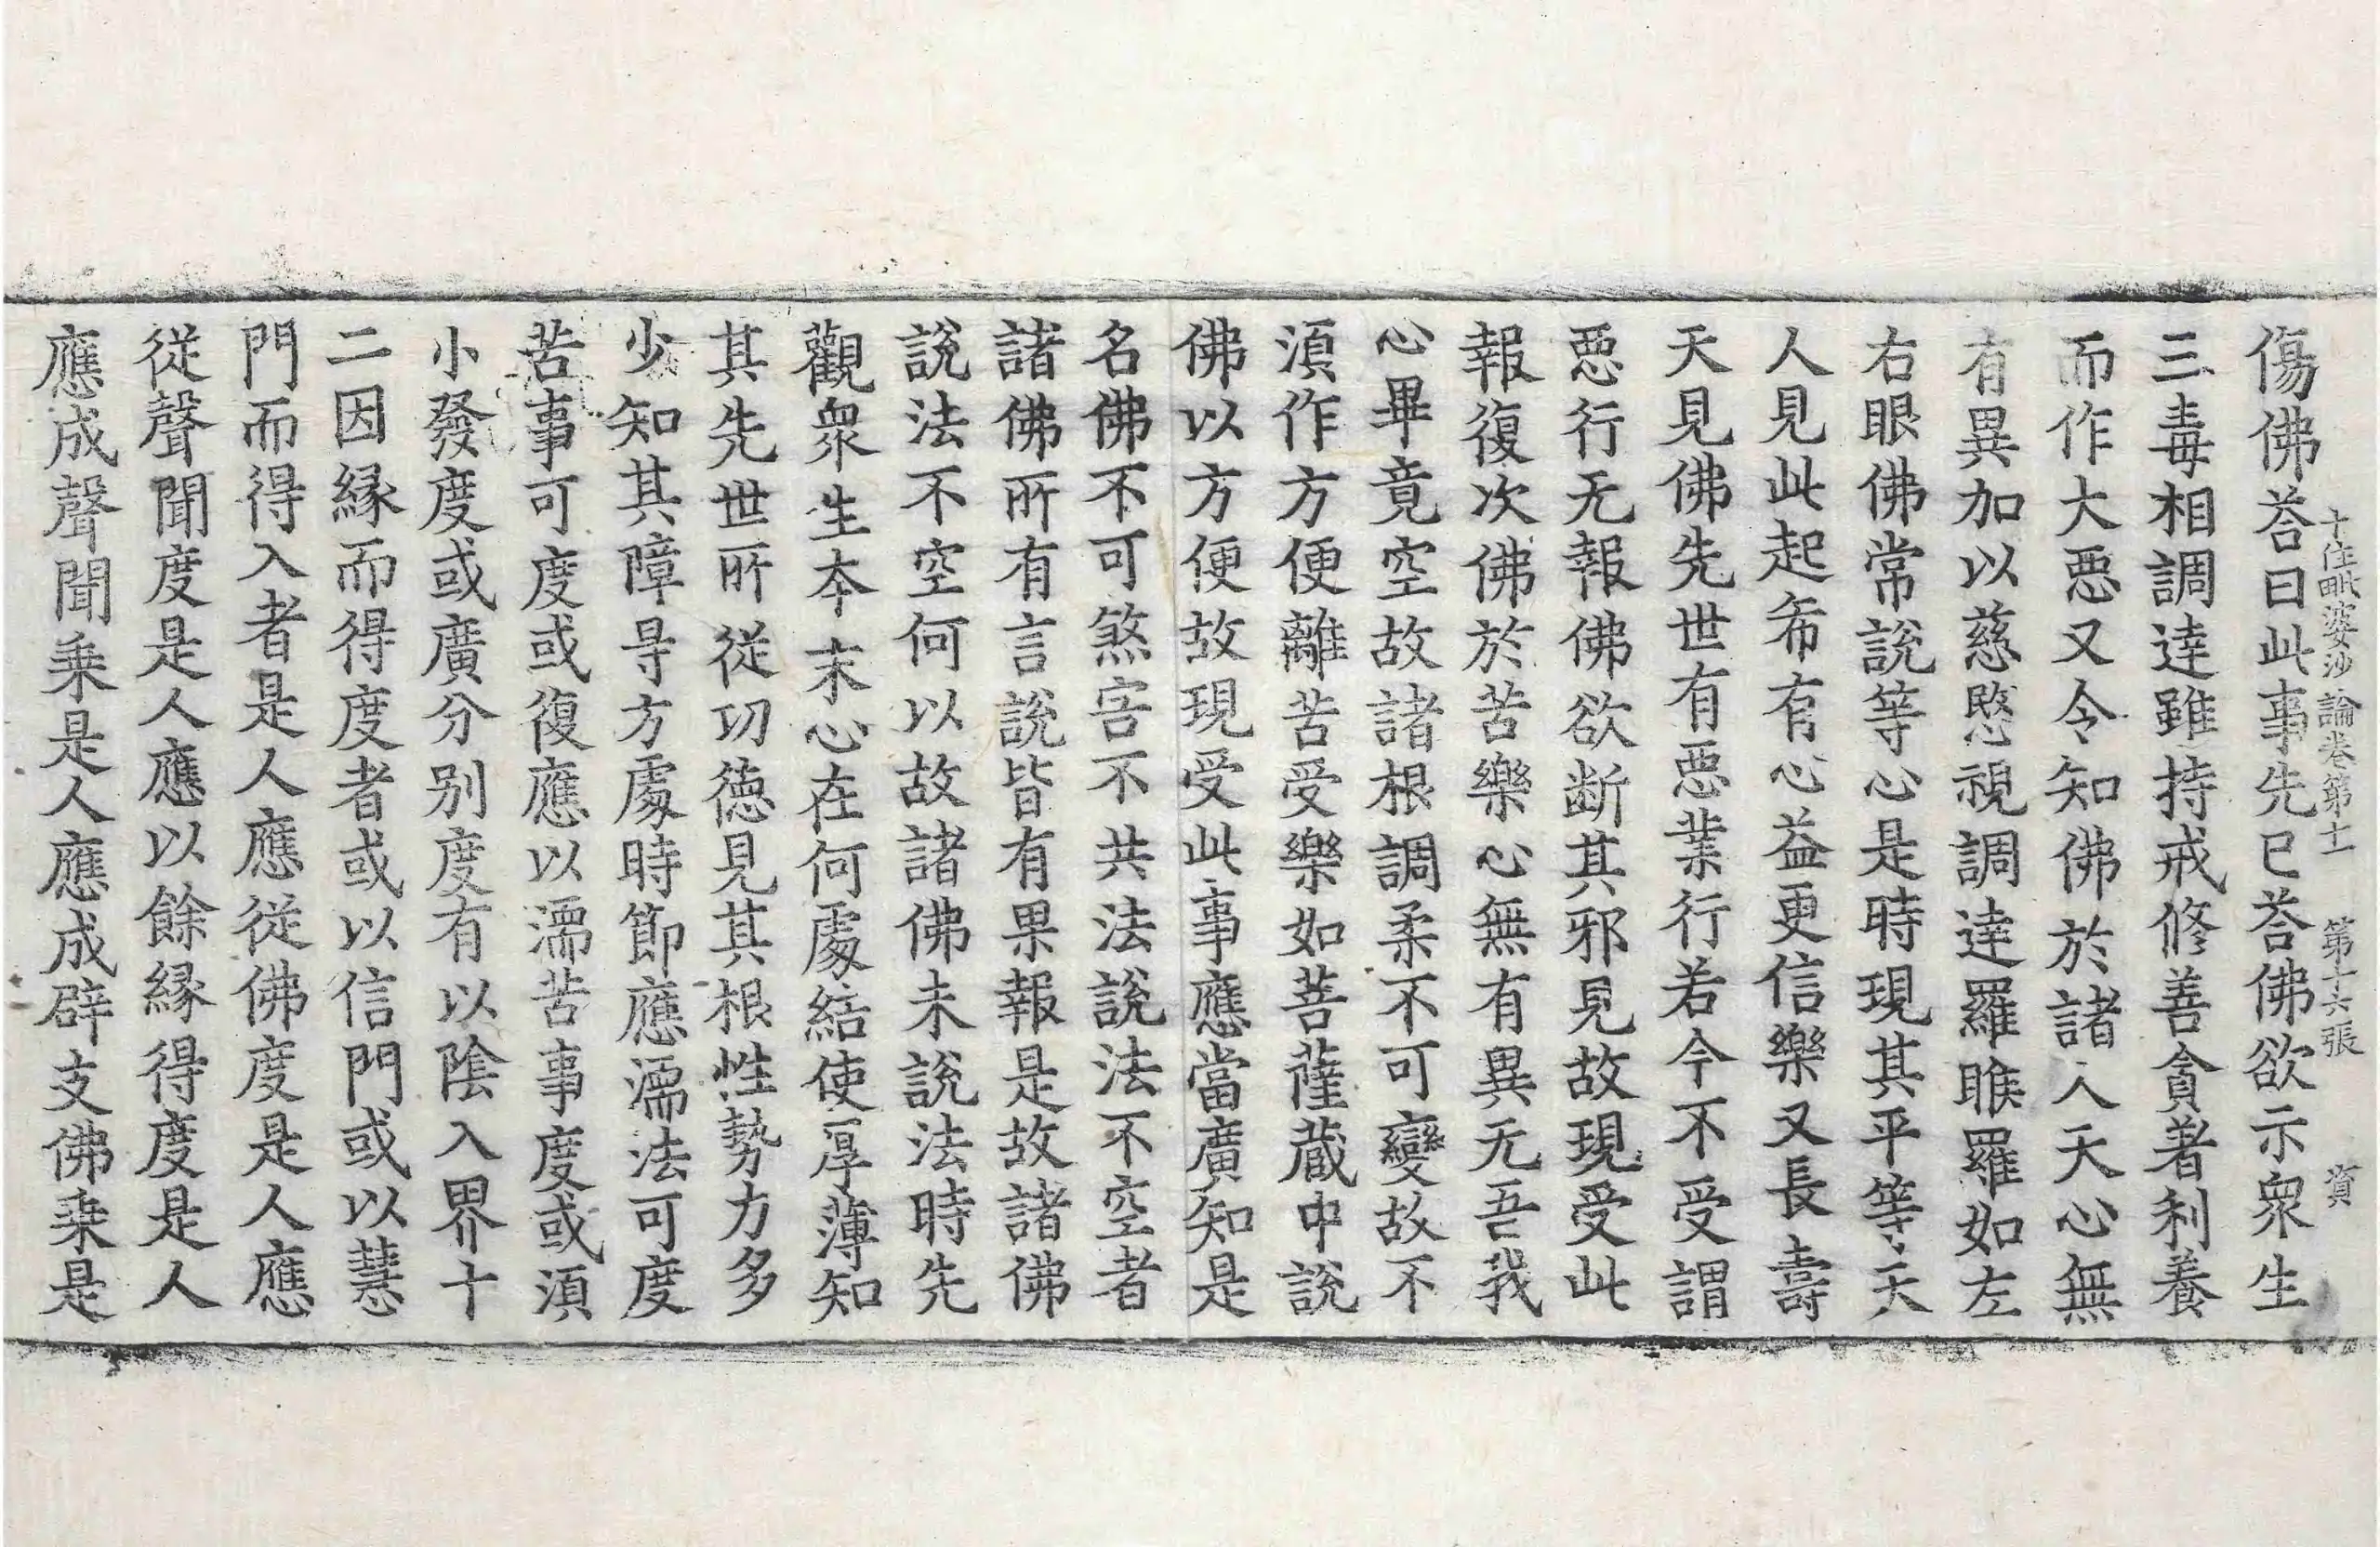 十住毗婆沙論卷第十一　第十六張　資
傷佛荅曰此事先已荅佛欲示衆生
三毒相調達雖持戒修善貪著利養
而作大惡又令知佛於諸人天心無
有異加以慈愍視調達羅睺羅如左
右眼佛常說等心是時現其平等天
人見此起希有心益更信樂又長壽
天見佛先世有惡業行若今不受謂
惡行无報佛欲断其邪見故現受此
報復次佛於苦樂心無有異无吾我
心畢竟空故諸根調柔不可變故不
湏作方便離苦受樂如菩薩蔵中說
佛以方便故現受此事應當廣知是
名佛不可煞害不共法說法不空者
諸佛所有言說皆有果報是故諸佛
說法不空何以故諸佛未說法時先
觀衆生夲末心在何處結使厚薄知
其先世所從功德見其根性勢力多
少知其障㝵方處時節應濡法可度
苦事可度或復應以濡苦事度或湏
小發度或廣分別度有以陰入界十
二因縁而得度者或以信門或以慧
門而得入者是人應從佛度是人應
從聲聞度是人應以餘縁得度是人
應成聲聞乗是人應成辟支佛乗是